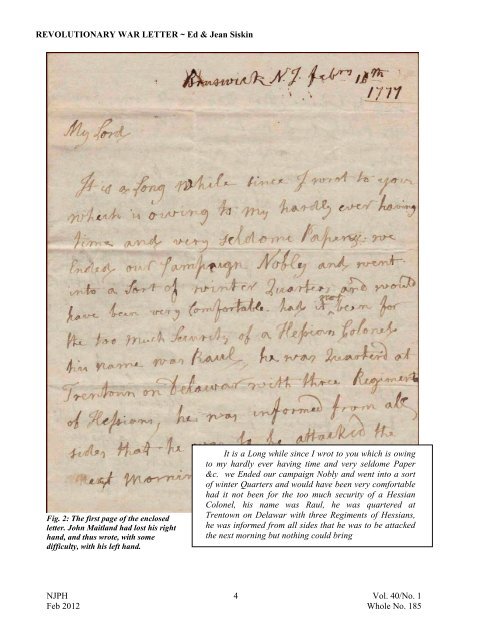 REVOLUTIONARY WAR LETTER ~ Ed & Jean Siskin
Brunswick N.J. Febry
1777
My Lord
It is a Long While since I wrot to you
which is owing to my hardly ever having
time and very seldome Paper &c. we
Ended our Campaign Nobley and went
into a Sort of winter Quarters and would
have been very Comfortable had it not been for
the too much Security of a Hessian Colonel
his name was Raul, he was Quarterd at
Trentown on Delawar with three Regiments
of Hessians, he was informed from all
sides that he was to be attacked the
next Mornin
It is a Long while since I wrot to you which is owing
to my hardly ever having time and very seldome Paper
&c. we Ended our campaign Nobly and went into a sort
of winter Quarters and would have been very comfortable
had it not been for the too much security of a Hessian
Colonel, his name was Raul, he was quartered at
Trentown on Delawar with three Regiments of Hessians,
he was informed from all sides that he was to be attacked
the next morning but nothing could bring
Fig. 2: The first page of the enclosed
letter. John Maitland had lost his right
hand, and thus wrote, with some
difficulty, with his left hand.
NJPH 4 Vol. 40/No. 1
Feb 2012 Whole No. 185